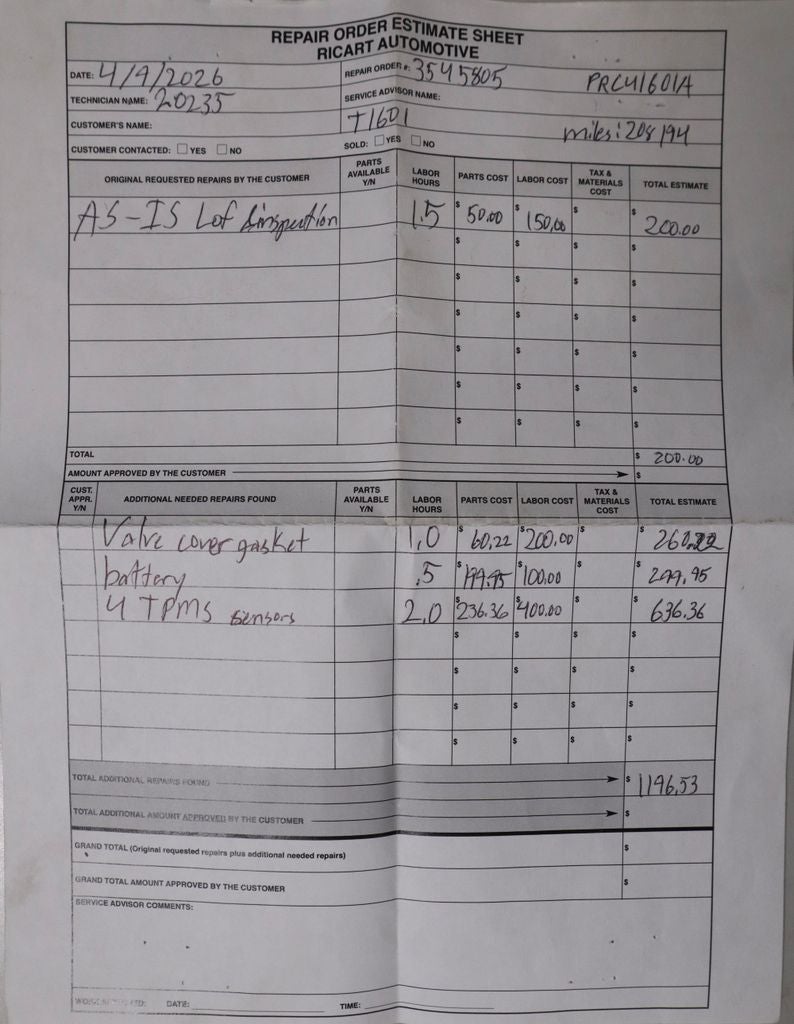 REPAIR ORDER ESTIMATE SHEET
RICART AUTOMOTIVE
DATE: 4/9/2026 REPAIR ORDER #: 3545805 PRC41601A
TECHNICIAN NAME: 20235 SERVICE ADVISOR NAME:
CUSTOMER'S NAME: T1601 miles: 208194
CUSTOMER CONTACTED: YES NO SOLD: YES NO
ORIGINAL REQUESTED REPAIRS BY THE CUSTOMER PARTS AVAILABLE Y/N LABOR HOURS PARTS COST LABOR COST TAX & MATERIALS COST TOTAL ESTIMATE
AS-IS Lof & inspection 1.5 $ 50.00 $ 150.00 $ $ 200.00
$ $ $ $
$ $ $ $
$ $ $ $
$ $ $ $
$ $ $ $
$ $ $ $
TOTAL $ 200.00
AMOUNT APPROVED BY THE CUSTOMER $
CUST. APPR. Y/N ADDITIONAL NEEDED REPAIRS FOUND PARTS AVAILABLE Y/N LABOR HOURS PARTS COST LABOR COST TAX & MATERIALS COST TOTAL ESTIMATE
Valve cover gasket 1.0 $ 60.22 $ 200.00 $ $ 260.22
battery .5 $ 199.95 $ 100.00 $ $ 299.95
4 TPMS sensors 2.0 $ 236.36 $ 400.00 $ 636.36
$ $ $ $
$ $ $ $
$ $ $ $
$ $ $ $
TOTAL ADDITIONAL REPAIRS FOUND $ 1196.53
TOTAL ADDITIONAL AMOUNT APPROVED BY THE CUSTOMER $
GRAND TOTAL (Original requested repairs plus additional needed repairs) $
GRAND TOTAL AMOUNT APPROVED BY THE CUSTOMER $
SERVICE ADVISOR COMMENTS:
DATE: TIME: